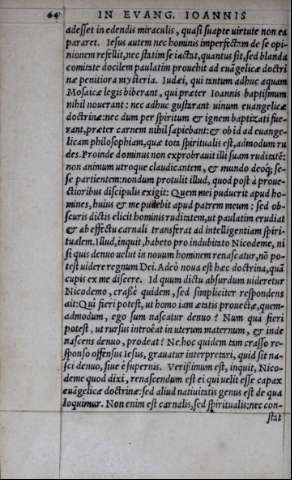 64 IN EVANG. IOANNIS
adesset in edendis miraculis, quasi suapte uirtute non ea
pararet. Iesus autem nec hominis imperfectam de se opi-
nionem refellit, nec statim se iactat, quantus sit, sed blanda
comitate docilem paulatim prouehit ad euãgelicæ doctri
næ penitiora mysteria. Iudæi, qui tantum adhuc aquam
Mosaicæ legis biberant, qui præter Ioannis baptismum
nihil nouerant: nec adhuc gustarant uinum euangelicæ
doctrinæ: nec dum per spiritum & ignem baptizati fue-
rant, præter carnem nihil sapiebant: & ob id ad euange-
licam philosophiam, quæ tota spiritualis est, admodum ru
des. Proinde dominus non exprobrauit illi suam ruditatẽ:
non animum utroque claudicantem, & mundo deoq; se-
se partientem: nondum protulit illud, quod post à proue-
ctioribus discipulis exigit: Quem mei puduerit apud ho-
mines, huius & me pudebit apud patrem meum: sed ob-
scuris dictis elicit hominis ruditatem, ut paulatim erudiat
& ab effectu carnali transferat ad intelligentiam spiri-
tualem. Illud, inquit, habeto pro indubitato Nicodeme, ni
si quis denuo uelut in nouum hominem renascatur, nõ po-
test uidere regnum Dei. Adeò noua est hæc doctrina, quã
cupis ex me discere. Id quum dictu absurdum uideretur
Nicodemo, crassè quidem, sed simpliciter respondens
ait: Quî fieri potest, ut homo iam ætatis prouectæ, quem-
admodum, ego sum nascatur denuo? Num qui fieri
potest, ut rursus introëat in uterum maternum, & inde
nascens denuo, prodeat? Ne hoc quidem tam crasso re-
sponso offensus Iesus, grauatur interpretari, quid sit na-
sci denuo, siue è supernis. Verissimum est, inquit, Nico-
deme quod dixi, renascendum est ei qui uelit esse capax
euãgelicæ doctrinæ: sed aliud natiuitatis genus est de qua
loquimur. Non enim est carnalis, sed spiritualis: nec con-
stat